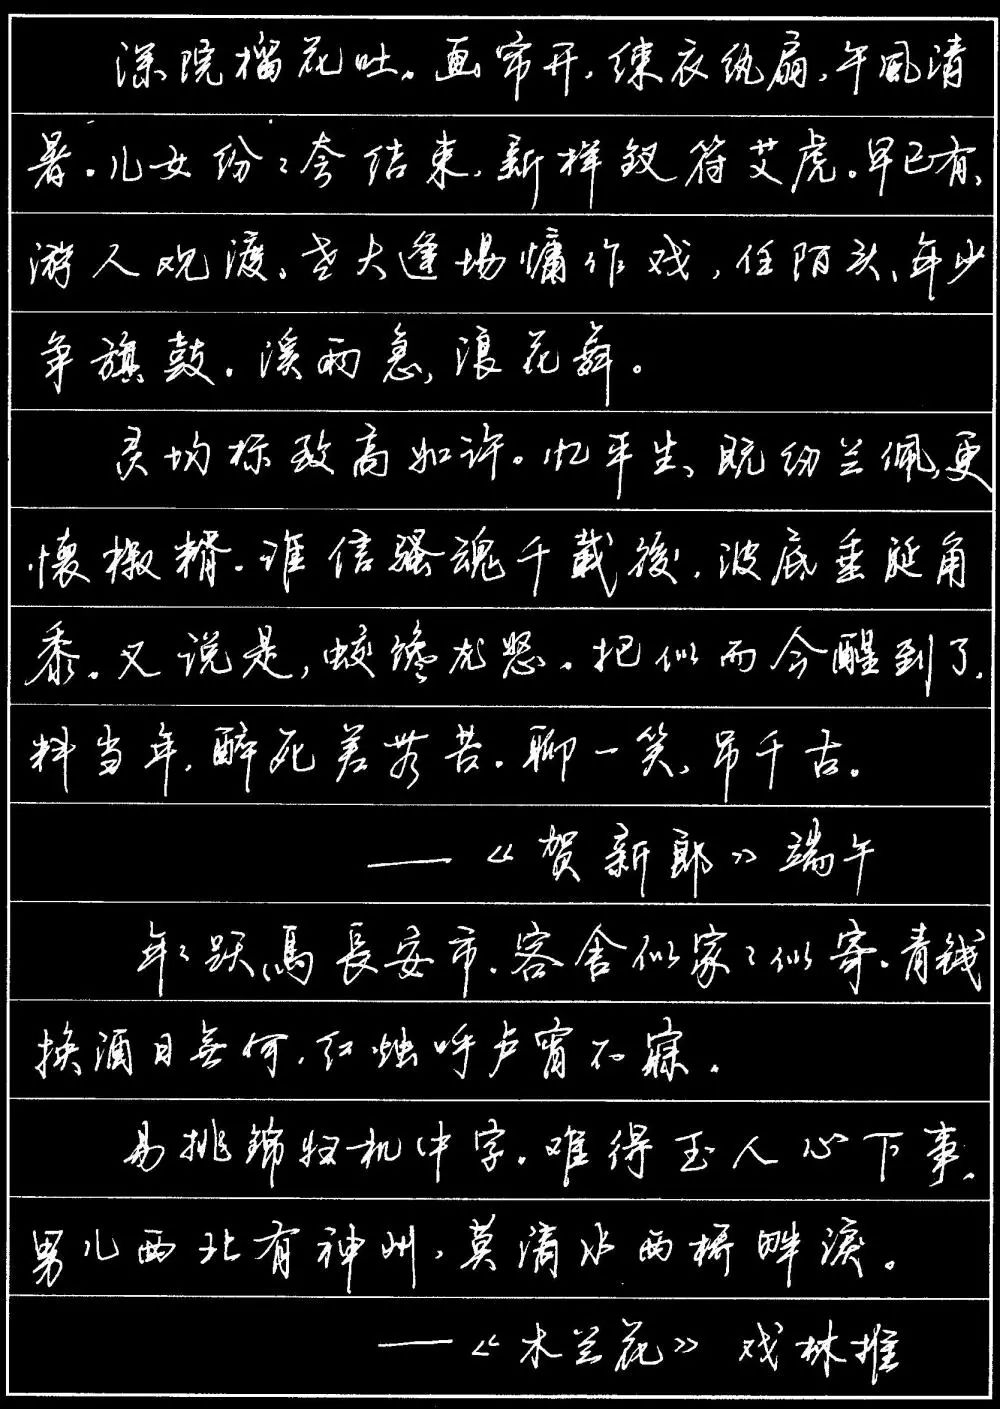 深院榴花吐。画帘开,綀衣纨扇,午風清
暑。儿女纷〻夸结束,新样钗符艾虎。早已有、
游人观渡。老大逢場慵作戏,任陌头、年少
争旗鼓。溪雨急,浪花舞。
灵均标致高如许。忆平生、既纫兰佩,更
懷椒糈。谁信骚魂千載後,波底垂涎角
黍。又说是,蛟馋龙怒。把似而今醒到了,
料当年,醉死差无苦。聊一笑,吊千古。
——《贺新郎》端午
年〻跃馬長安市。客舍似家〻似寄。青钱
换酒日無何,红烛呼卢宵不寐。
易挑錦妇机中字。难得玉人心下事。
男儿西北有神州,莫滴水西橋畔淚。
——《木兰花》戏林推